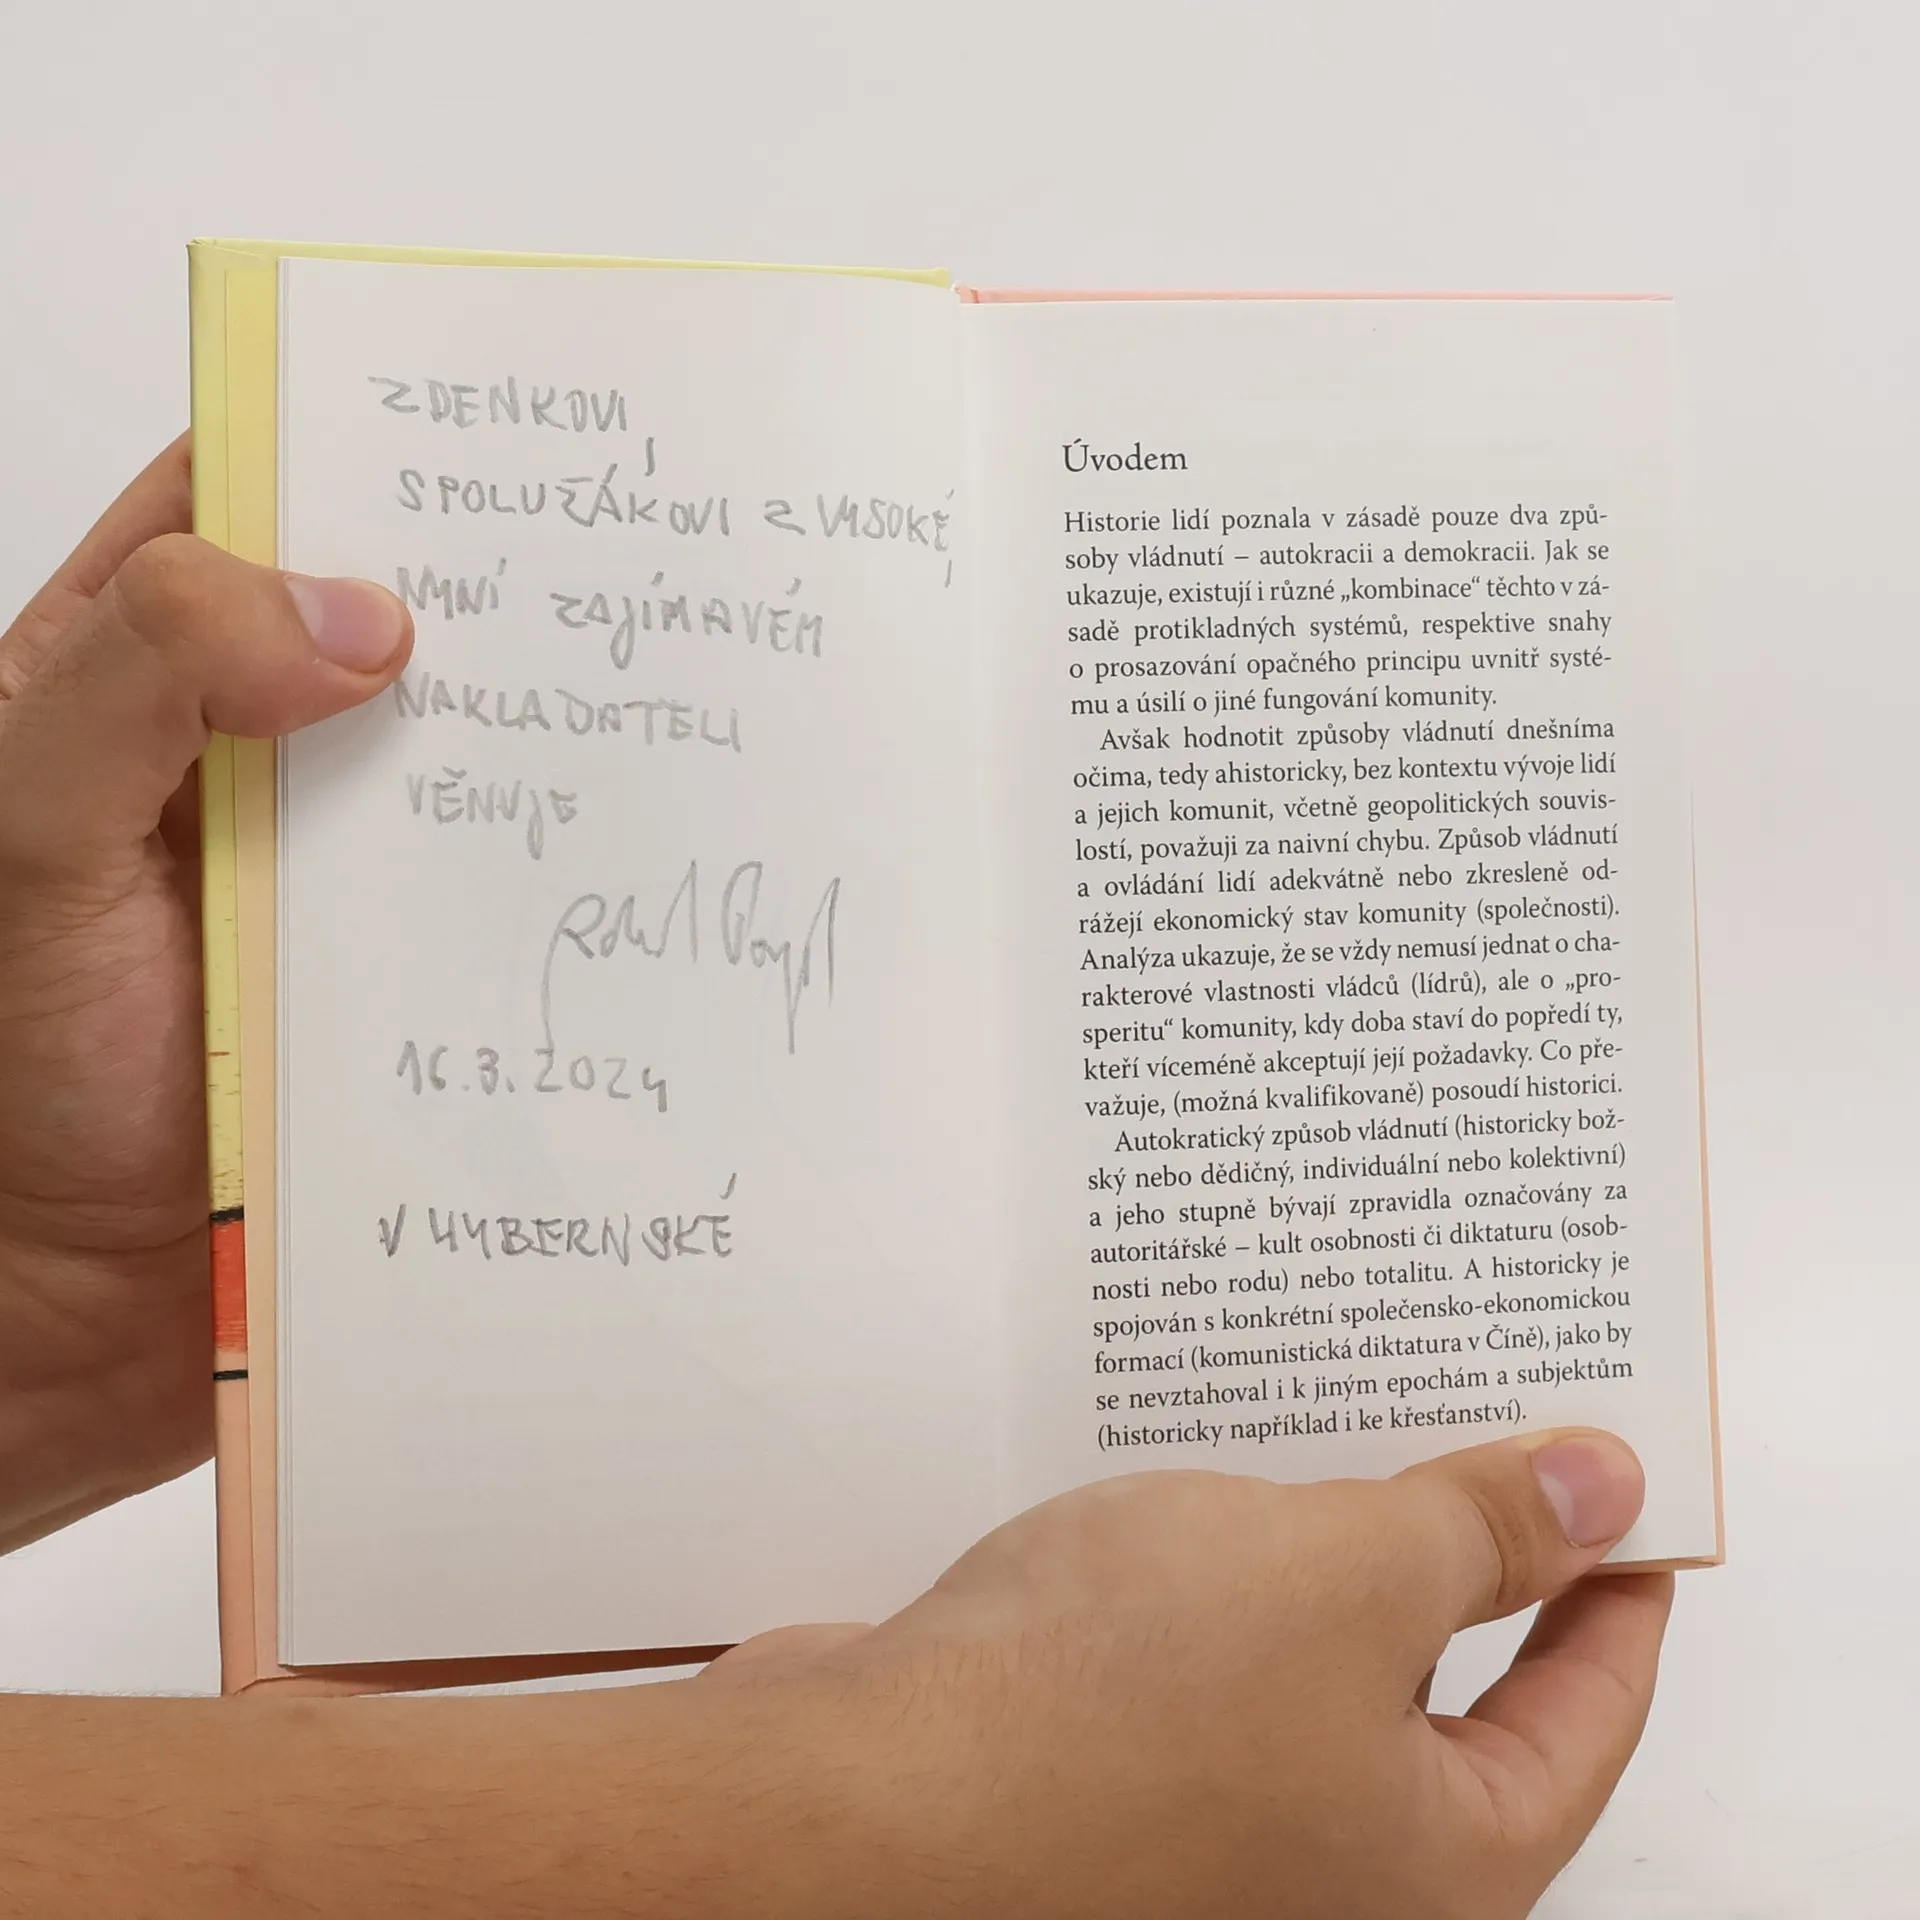 ZDENKOVI,
SPOLUŽÁKOVI Z VYSOKÉ,
NYNÍ ZAJÍMAVÉM
NAKLADATELI
VĚNUJE
16.3.2024
V HYBERNSKÉ
Úvodem
Historie lidí poznala v zásadě pouze dva způ-
soby vládnutí – autokracii a demokracii. Jak se
ukazuje, existují i různé „kombinace“ těchto v zá-
sadě protikladných systémů, respektive snahy
o prosazování opačného principu uvnitř systé-
mu a úsilí o jiné fungování komunity.
Avšak hodnotit způsoby vládnutí dnešníma
očima, tedy ahistoricky, bez kontextu vývoje lidí
a jejich komunit, včetně geopolitických souvis-
lostí, považuji za naivní chybu. Způsob vládnutí
a ovládání lidí adekvátně nebo zkresleně od-
rážejí ekonomický stav komunity (společnosti).
Analýza ukazuje, že se vždy nemusí jednat o cha-
rakterové vlastnosti vládců (lídrů), ale o „pro-
speritu“ komunity, kdy doba staví do popředí ty,
kteří víceméně akceptují její požadavky. Co pře-
važuje, (možná kvalifikovaně) posoudí historici.
Autokratický způsob vládnutí (historicky bož-
ský nebo dědičný, individuální nebo kolektivní)
a jeho stupně bývají zpravidla označovány za
autoritářské – kult osobnosti či diktaturu (osob-
nosti nebo rodu) nebo totalitu. A historicky je
spojován s konkrétní společensko-ekonomickou
formací (komunistická diktatura v Číně), jako by
se nevztahoval i k jiným epochám a subjektům
(historicky například i ke křesťanství).